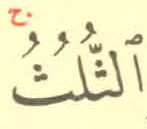 ٱلثُّلُثُ